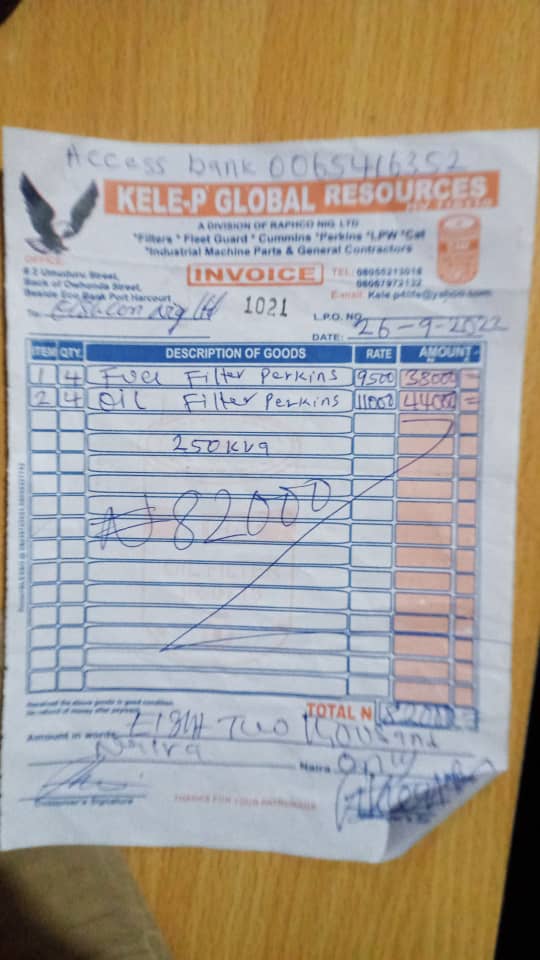 Access bank 0065416352
KELE-P GLOBAL RESOURCES
A DIVISION OF RAPHCO NIG. LTD
*Filters * Fleet Guard * Cummins *Perkins *LPW *Cat
*Industrial Machine Parts & General Contractors
OFFICE:
Street,
Back of Owhonda Street,
Beside Eco Bank Port Harcourt
INVOICE
TEL:
E-mail:
To: Nig Ltd
1021
L.P.O. NO.
DATE: 26-9-2022
ITEM QTY. DESCRIPTION OF GOODS RATE AMOUNT
1 4 Fuel Filter Perkins 9500 38000 =
2 4 OIL Filter Perkins 11000 44000 =
250KVA
₦82000
Received the above goods in good condition
No refund of money after payment
TOTAL N 82000
Amount in words Eight Two thousand
Naira Naira only
Customer's Signature
THANKS FOR YOUR PATRONAGE